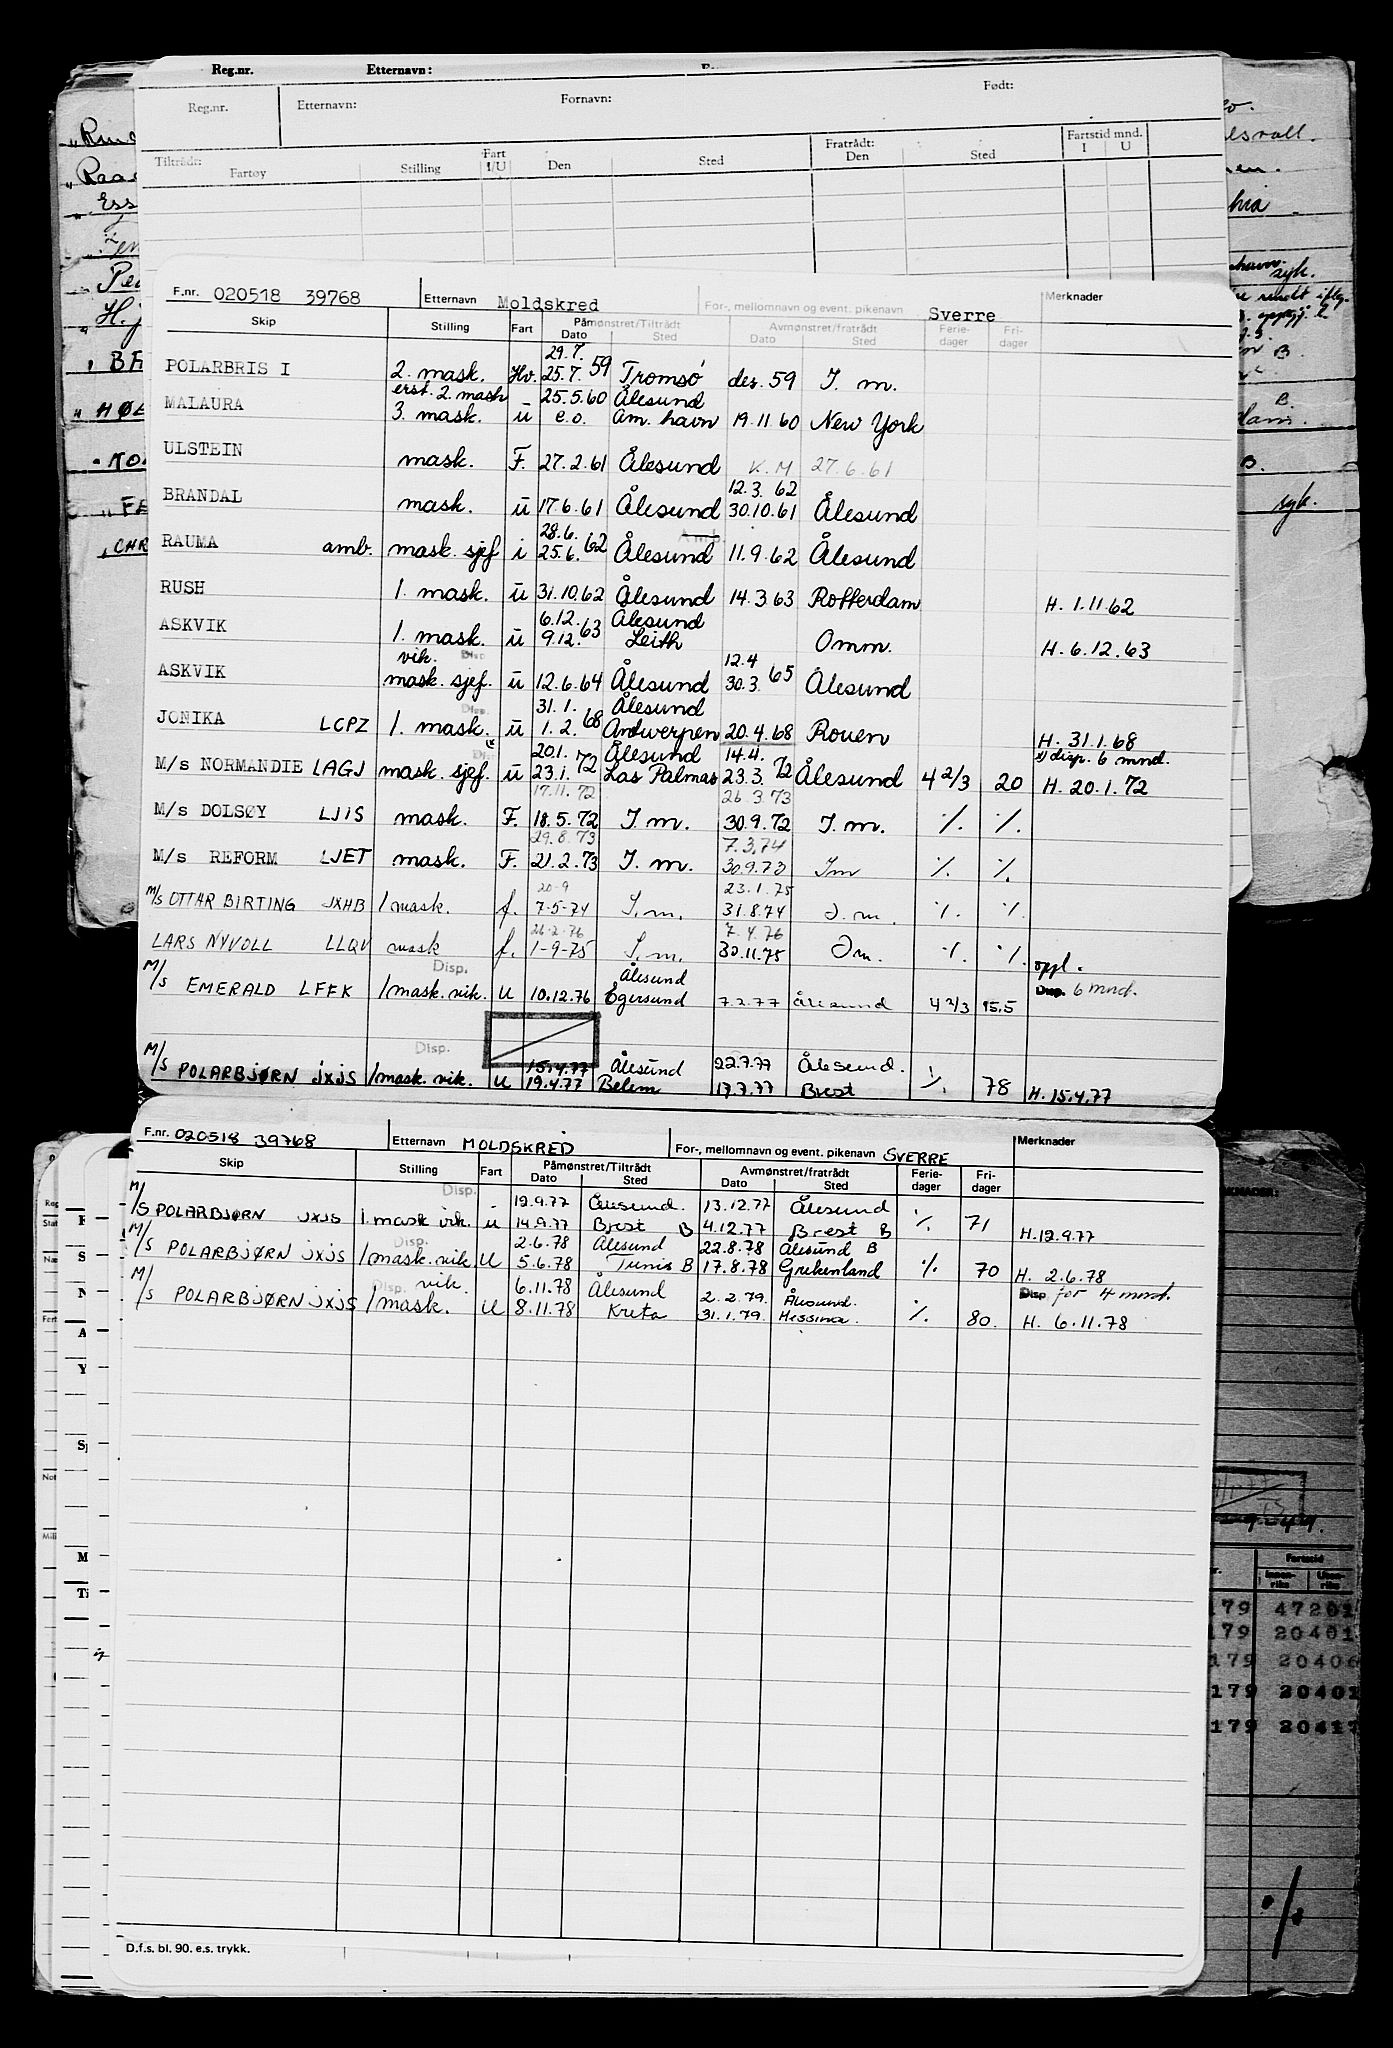 Reg.nr. Etternavn:
Reg.nr. Etternavn: Fornavn: Født:
Tiltrådt: Fartøy Stilling Fart I/U Den Sted Fratrådt: Den Sted Fartstid mnd. I U
F.nr. 020518 39768 Etternavn Moldskred For-, mellomnavn og event. pikenavn Sverre Merknader
Skip Stilling Fart Påmønstret/Tiltrådt Dato Sted Avmønstret/fratrådt Dato Sted Ferie-dager Fri-dager
29.7.
POLARBRIS I 2. mask. Hv. 25.7. 59 Tromsø des. 59 I. m.
erst. 2. mask 25.5.60 Ålesund
MALAURA 3. mask. u e.o. Am. havn 19.11 60 New York
ULSTEIN mask. F. 27.2.61 Ålesund K.M 27.6.61
12.3.62
BRANDAL mask. u 17.6.61 Ålesund 30.10.61 Ålesund
28.6.
RAUMA amb. mask. sjef i 25.6. 62 Ålesund 11.9.62 Ålesund
RUSH 1. mask. u 31.10.62 Ålesund 14.3.63 Rotterdam H. 1.11.62
6.12. Ålesund
ASKVIK 1. mask. u 9.12. 63 Leith Omm. H. 6.12.63
vik. Disp 12.4
ASKVIK mask. sjef. u 12.6.64 Ålesund 30.3. 65 Ålesund
Disp. 31.1. Ålesund
JONIKA LCPZ 1. mask. u 1.2. 68 Antwerpen 20.4.68 Rouen H. 31.1.68
20.1. Ålesund 14.4. x) disp. 6 mnd.
M/s NORMANDIE LAGJ mask. sjef. u 23.1. 72 Las Palmas 23.3. 72 Ålesund 4 2/3 20 H. 20.1.72
17.11.72 26.3.73
M/s DOLSØY LJIS mask. F. 18.5.72 I. m. 30.9.72 I. m. % %.
29.8.73 7.3.74
M/s REFORM LJET mask. F. 21.2.73 I. m. 30.9.73 Im % %.
20-9 23.1.75
M/s OTTAR BIRTING JXHB 1 mask. f. 7-5-74 I. m. 31.8.74 I. m. %. %
26-2-76 7.4.76
LARS NYVOLL LLQV mask f. 1-9-75 I. m. 30.11.75 Im. %. %.
Disp. Ålesund oppl.
M/S EMERALD LFFK 1 mask. vik. U 10.12.76 Egersund 7.2.77 Ålesund 4 2/3 15.5 Disp. 6 mnd.
Disp. 15.4.77 Ålesund 22.7.77 Ålesund.
M/S POLARBJØRN JXJS 1 mask. vik. U 19.4.77 Belem 17.7.77 Brest % 78 H. 15.4.77
F.nr. 020518 39768 Etternavn MOLDSKRED For-, mellomnavn og event. pikenavn SVERRE Merknader
Skip Stilling Fart Påmønstret/Tiltrådt Dato Sted Avmønstret/fratrådt Dato Sted Ferie-dager Fri-dager
Disp. 12.9.77 Ålesund. 13.12.77 Ålesund
M/S POLARBJØRN JXJS 1. mask vik. u 14.9.77 Brest B 4.12.77 Brest B % 71 H. 12.9.77
Disp. 2.6.78 Ålesund 22.8.78 Ålesund B
M/S POLARBJØRN JXJS 1 mask. vik U 5.6.78 Tunis B 17.8.78 Grekenland % 70 H. 2.6.78
Disp. vik. 6.11.78 Ålesund 2.2.79. Ålesund. Disp for 4 mnd.
M/S POLARBJØRN JXJS 1 mask. U 8.11.78 Kreta 31.1.79. Messina. %. 80. H. 6.11.78
D.f.s. bl. 90. e.s. trykk.
179 47201
179 20401
179 20406
179 20401
179 20417